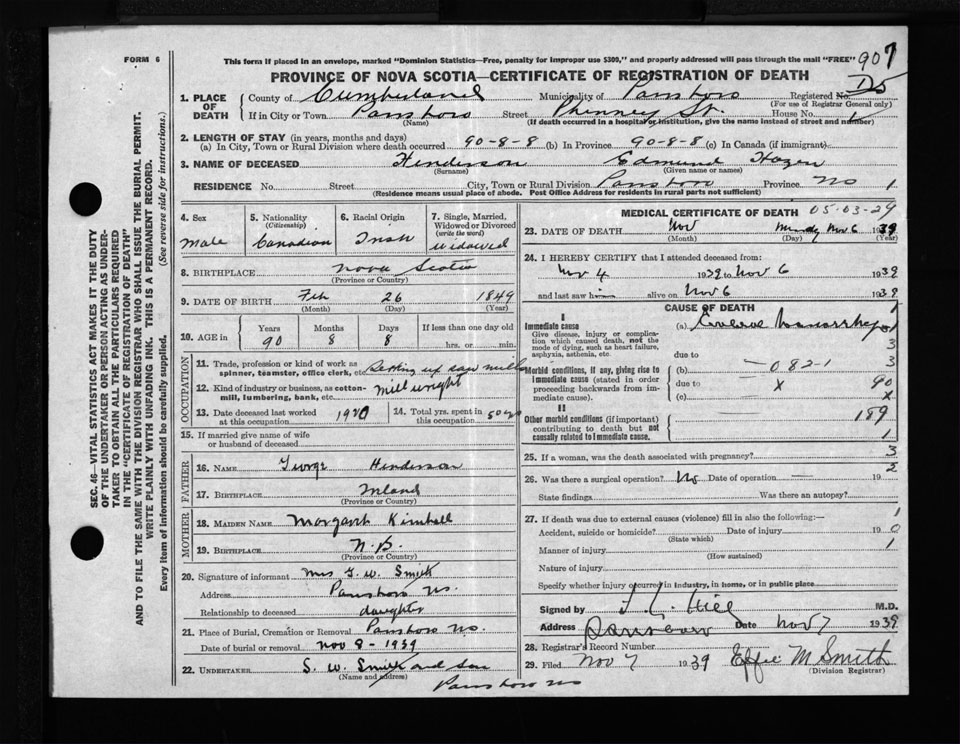 FORM 6
This form if placed in an envelope, marked "Dominion Statistics—Free, penalty for improper use $300," and properly addressed will pass through the mail "FREE"
907
PROVINCE OF NOVA SCOTIA—CERTIFICATE OF REGISTRATION OF DEATH
1. PLACE OF DEATH
County of Cumberland Municipality of Parrsboro Registered No.
(For use of Registrar General only)
If in City or Town Parrsboro Street Phinney St. House No.
(Name) (If death occurred in a hospital or institution, give the name instead of street and number)
2. LENGTH OF STAY (in years, months and days)
(a) In City, Town or Rural Division where death occurred 90-8-8 (b) In Province 90-8-8 (c) In Canada (if immigrant)
3. NAME OF DECEASED Henderson Edmund Hazen
(Surname) (Given name or names)
RESIDENCE No. Street City, Town or Rural Division Parrsboro Province NS 1
(Residence means usual place of abode. Post Office Address for residents in rural parts not sufficient)
4. Sex
male
5. Nationality
(Citizenship)
Canadian
6. Racial Origin
Irish
7. Single, Married, Widowed or Divorced
(write the word)
widowed
8. BIRTHPLACE Nova Scotia
(Province or Country)
9. DATE OF BIRTH Feb 26 1849
(Month) (Day) (Year)
10. AGE in
Years Months Days If less than one day old
90 8 8 hrs. or min.
OCCUPATION
11. Trade, profession or kind of work as spinner, teamster, office clerk, etc. Setting up saw mills
12. Kind of industry or business, as cotton-mill, lumbering, bank, etc. millwright
13. Date deceased last worked at this occupation 1920
14. Total yrs. spent in this occupation 50 yrs
15. If married give name of wife or husband of deceased
FATHER
16. NAME George Henderson
17. BIRTHPLACE Ireland
(Province or Country)
MOTHER
18. MAIDEN NAME Margaret Kimball
19. BIRTHPLACE N.B.
(Province or Country)
20. Signature of informant Mrs G. W. Smith
Address Parrsboro NS.
Relationship to deceased daughter
21. Place of Burial, Cremation or Removal Parrsboro NS.
Date of burial or removal Nov 8 - 1939
22. UNDERTAKER S. W. Smith and Son
(Name and address)
Parrsboro NS
MEDICAL CERTIFICATE OF DEATH 05-03-29
23. DATE OF DEATH Nov Monday Nov 6 1939
(Month) (Day) (Year)
24. I HEREBY CERTIFY that I attended deceased from:
Nov 4 1939 to Nov 6 1939
and last saw him alive on Nov 6 1939
CAUSE OF DEATH
I
Immediate cause
Give disease, injury or complication which caused death, not the mode of dying, such as heart failure, asphyxia, asthenia, etc.
(a) Cerebral Haemorrhage
due to
Morbid conditions, if any, giving rise to Immediate cause (stated in order proceeding backwards from immediate cause).
(b) 082-1
due to x
(c)
II
Other morbid conditions (if important) contributing to death but not causally related to Immediate cause.
1
3
3
90
x
189
1
25. If a woman, was the death associated with pregnancy? 3
26. Was there a surgical operation? No Date of operation 19 2
State findings Was there an autopsy?
27. If death was due to external causes (violence) fill in also the following:— 1
Accident, suicide or homicide? Date of injury 19 0
(State which)
Manner of injury 1
(How sustained)
Nature of injury
Specify whether injury occurred in industry, in home, or in public place
Signed by Hill M.D.
Address Parrsboro Date Nov 7 1939
28. Registrar's Record Number
29. Filed Nov 7 1939 Effie M Smith
(Division Registrar)
SEC. 46—VITAL STATISTICS ACT MAKES IT THE DUTY
OF THE UNDERTAKER OR PERSON ACTING AS UNDER-
TAKER TO OBTAIN ALL THE PARTICULARS REQUIRED
IN THE "CERTIFICATE OF REGISTRATION OF DEATH"
AND TO FILE THE SAME WITH THE DIVISION REGISTRAR WHO SHALL ISSUE THE BURIAL PERMIT.
WRITE PLAINLY WITH UNFADING INK. THIS IS A PERMANENT RECORD.
Every item of information should be carefully supplied. (See reverse side for instructions.)